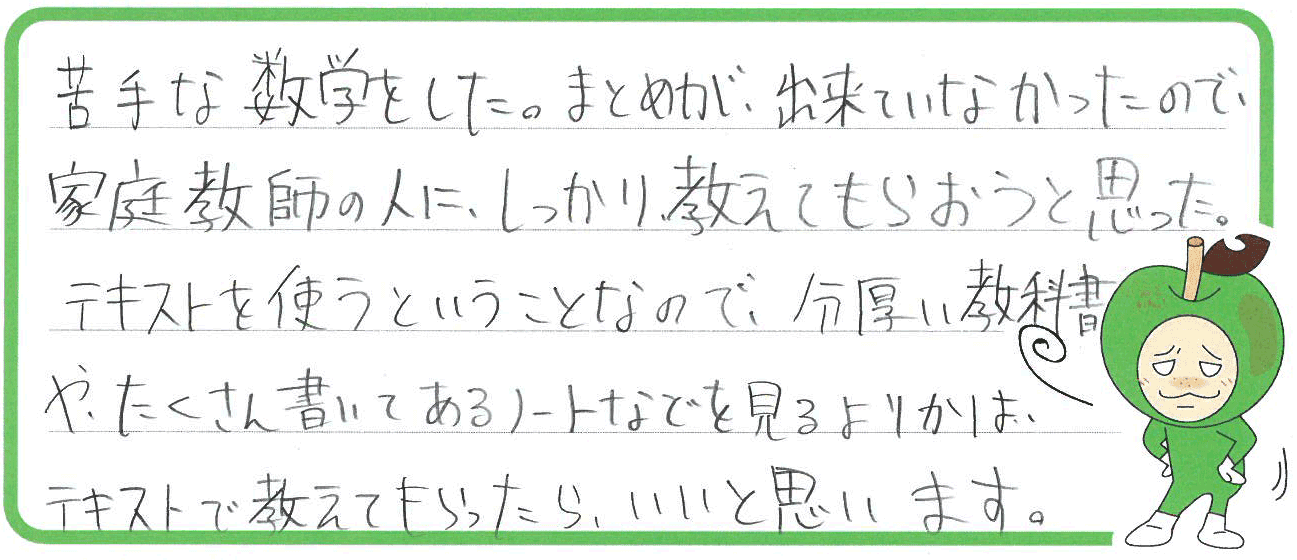 苦手な数学をした。まとめが、出来ていなかったので、
家庭教師の人に、しっかり教えてもらおうと思った。
テキストを使うということなので、分厚い教科書
や、たくさん書いてあるノートなどを見るよりかは、
テキストで教えてもらったら、いいと思います。